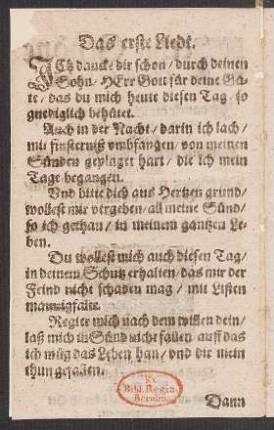 Das erste Liedt.
ICh dancke dir schon/durch deinen
Sohn/HErr Gott für deine Gü-
te/das du mich heute diesen Tag/so
gnediglich behütet.
Auch in der Nacht/darin ich lach/
mit finsterniß vmbfangen/von meinen
Sünden geplaget hart/die ich mein
Tage begangen.
Vnd bitte dich aus Hertzen grund/
wollest mir vergeben/all meine Sünd/
so ich gethan/in meinem gantzen Le-
ben.
Du wollest mich auch diesen Tag/
in deinem Schutz erhalten/das mir der
Feind nicht schaden mag/mit Listen
mannigfalte.
Regier mich nach dem willen dein/
laß mich in Sünd nicht fallen/auff das
ich müg das Leben han/vnd die mein
thun gefallen.
Ex
Bibl. Regia
Berolin.
Dann